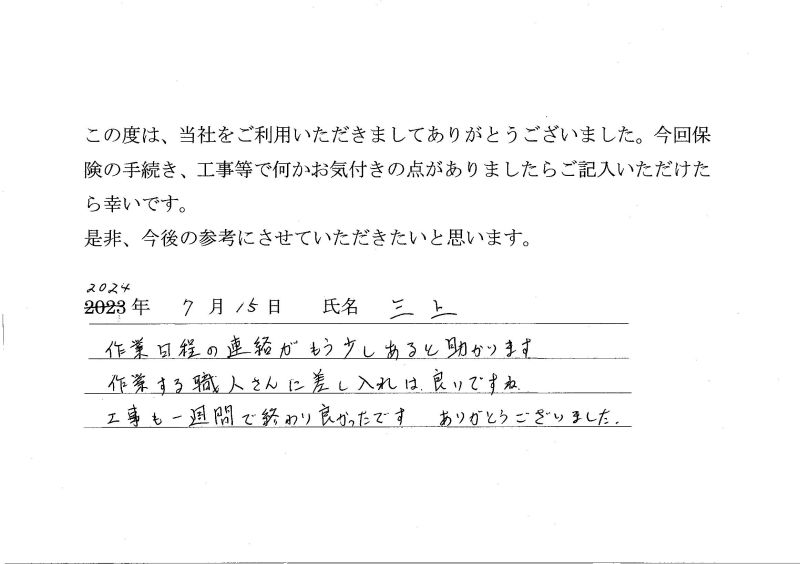 この度は、当社をご利用いただきましてありがとうございました。今回保
険の手続き、工事等で何かお気付きの点がありましたらご記入いただけた
ら幸いです。
是非、今後の参考にさせていただきたいと思います。
2024
2023年 7月15日 氏名 三上
作業日程の連絡がもう少しあると助かります
作業する職人さんに差し入れは良いですね
工事も一週間で終わり良かったです ありがとうございました.